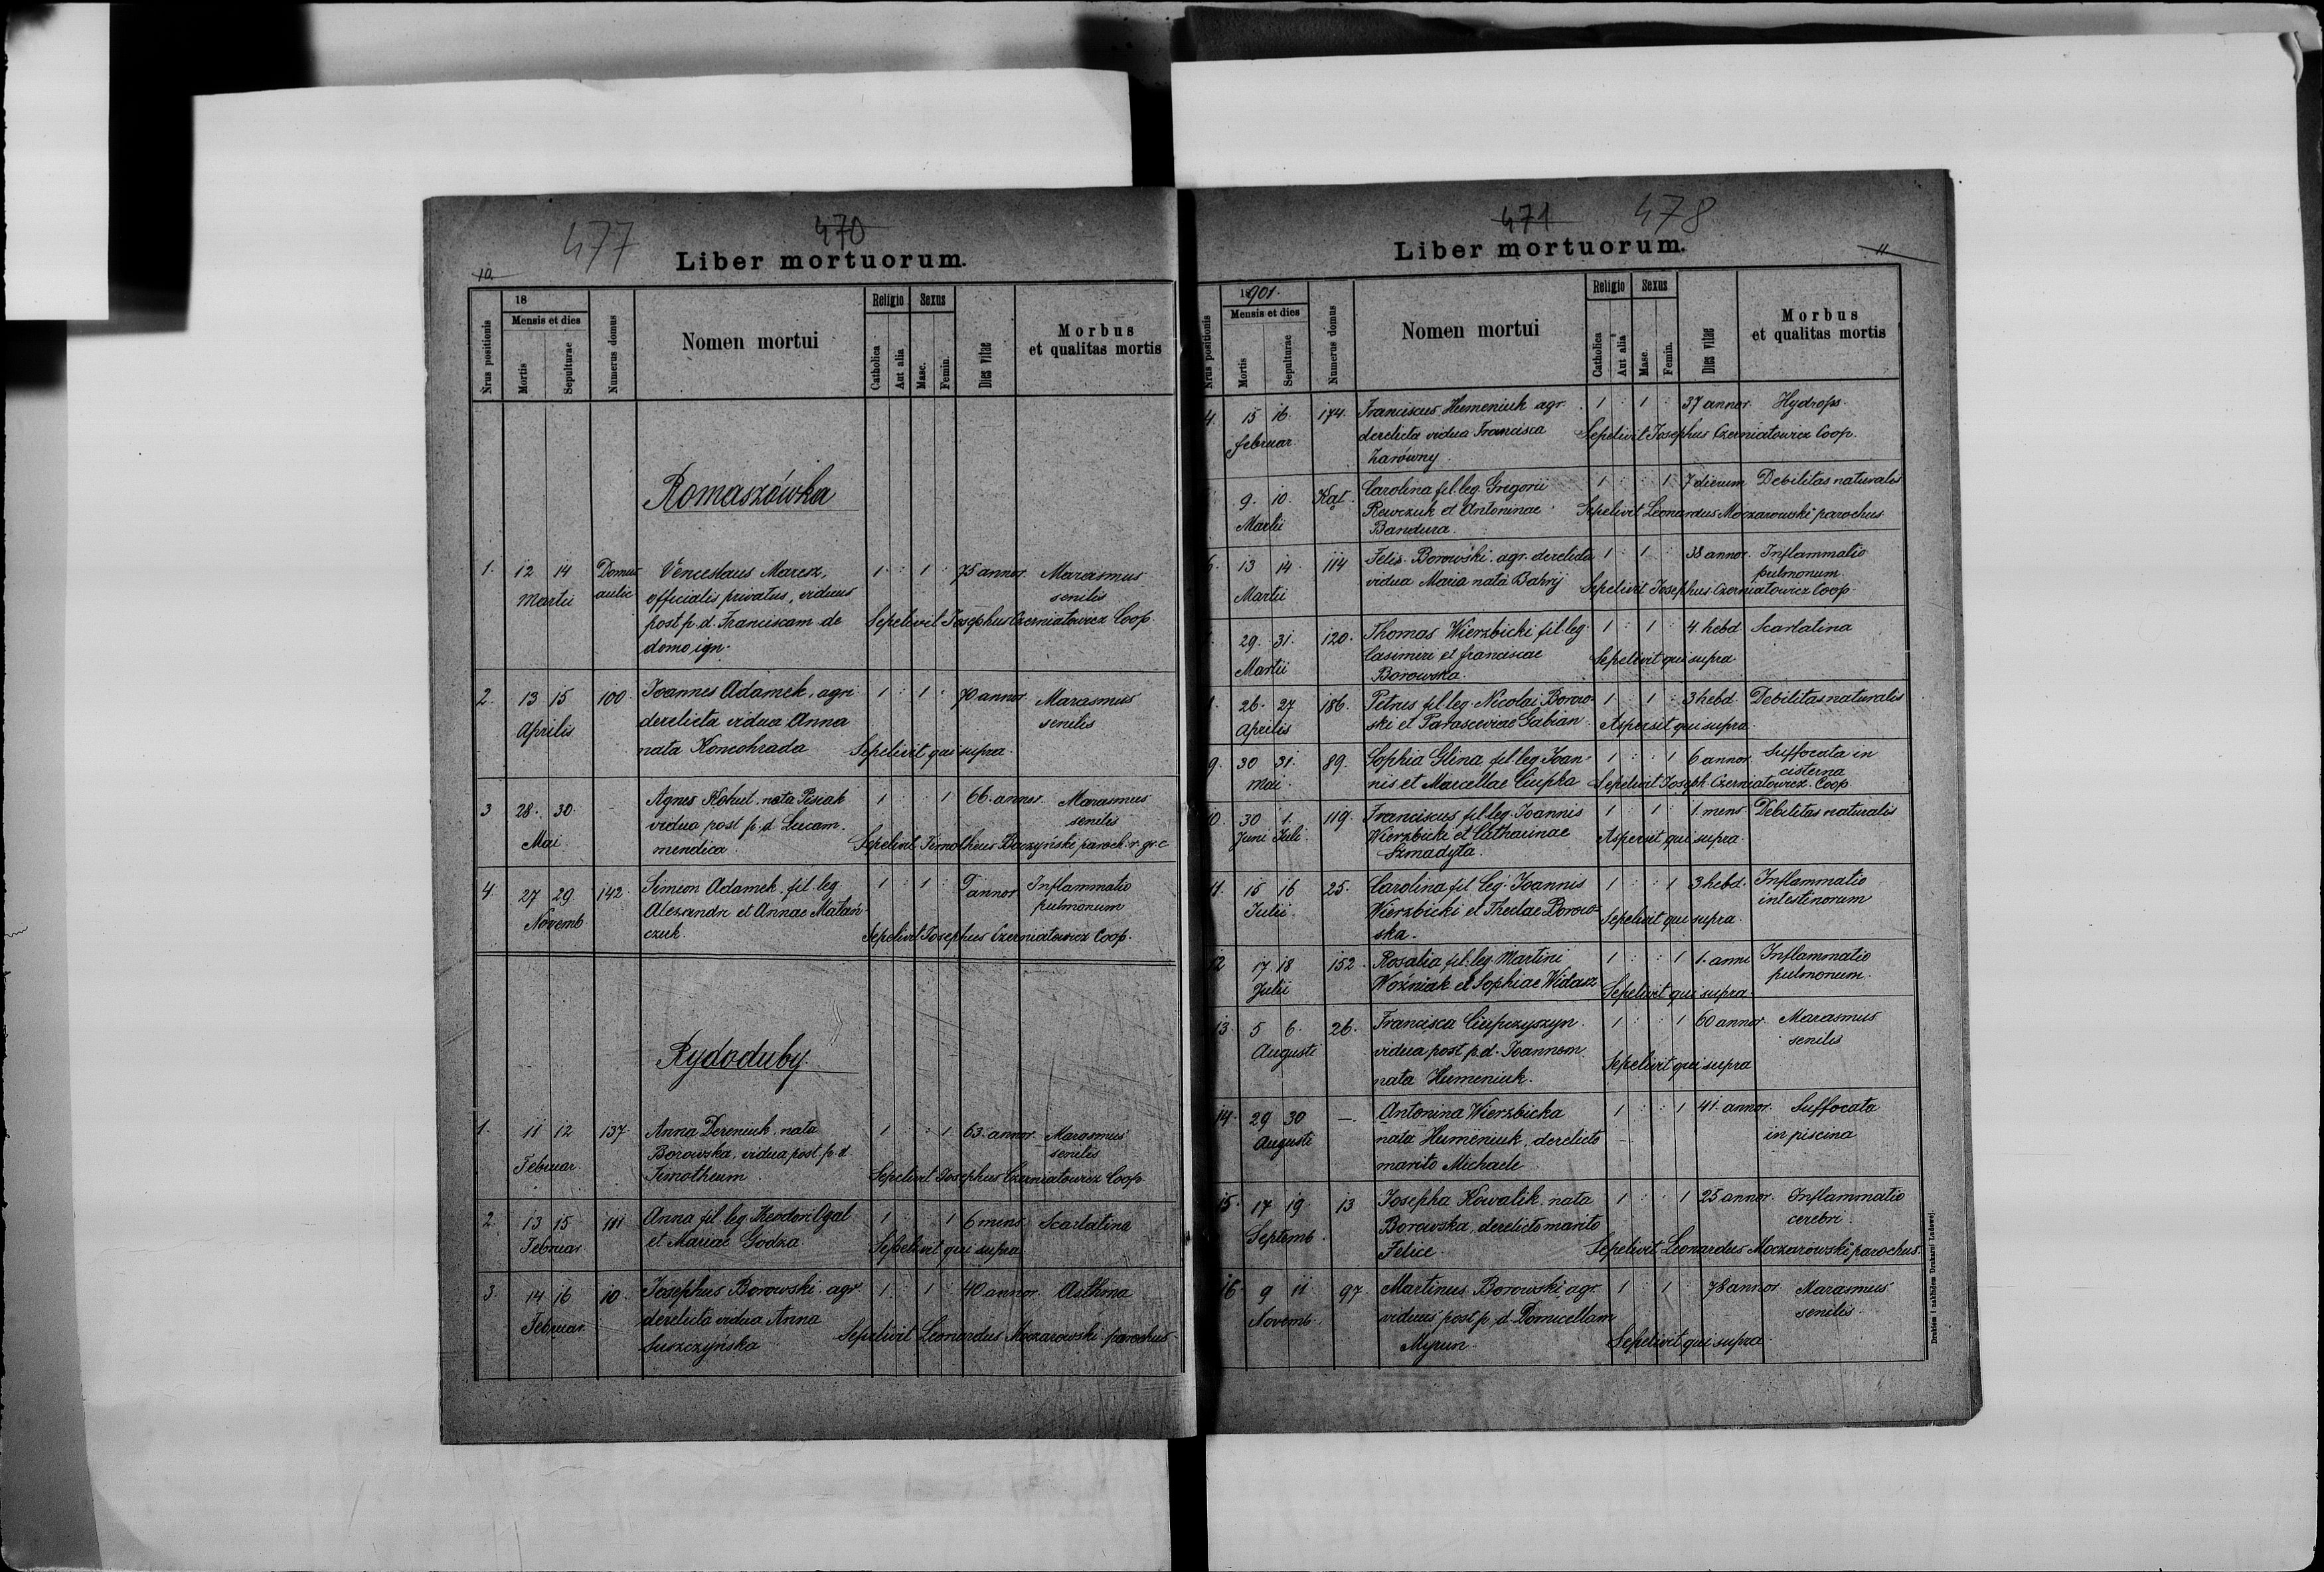 477
470
Liber mortuorum.
10.
Nrus positionis
18
Mensis et dies
Mortis
Sepulturae
Numerus domus
Nomen mortui
Religio
Catholica
Aut alia
Sexus
Masc.
Femin.
Dies vitae
Morbus
et qualitas mortis
Romaszówka
1. 12 14 Domus Venceslaus Maresz, 1 : 1 : 75 annor. Marasmus
Martii aulic officialis privatus, viduus senilis
post p. d. Franciscam de Sepelivit Josephus Czerniatowicz Coop.
domo ign.
2. 13 15 100. Joannes Adamek, agri 1 : 1 : 70 annor. Marasmus
Aprilis derelicta vidua Anna senilis
nata Koncohrada Sepelivit qui supra.
3 28. 30. - Agnes Kohut nata Pisiak 1 : 1 66. annor. Marasmus
Mai vidua post p. d. Lucam. senilis
mendica. Sepelivit Timotheus Boczyński paroch. r. gr. c
4. 27 29. 142. Simeon Adamek fil. leg. 1 : 1 : annor Inflammatio
Novemb Alexandri et Annae Matań pulmonum
czuk. Sepelivit Josephus Czerniatowicz Coop.
Rydoduby.
1. 11 12 137. Anna Dereniuk nata 1 : : 1 63. annor. Marasmus
Februar. Borowska, vidua post p. d. senilis
Timotheum Sepelivit Josephus Czerniatowicz Coop.
2. 13 15 181 Anna fil. leg. Theodori Ogal 1 : 1 6 mens Scarlatina
Februar. et Mariae Godza Sepelivit qui supra
3. 14 16 10. Josephus Borowski agr. 1 : 1 : 40 annor. Asthma
Februar. derelicta vidua Anna
Suszczyńska Sepelivit Leonardus Moczarowski parochus
471
478
Liber mortuorum.
11
Nrus positionis
18901.
Mensis et dies
Mortis
Sepulturae
Numerus domus
Nomen mortui
Religio
Catholica
Aut alia
Sexus
Masc.
Femin.
Dies vitae
Morbus
et qualitas mortis
4. 15 16. 174. Franciscus Humeniuk agr. 1 : 1 : 37 annor. Hydrops.
Februar. derelicta vidua Francisca Sepelivit Josephus Czerniatowicz Coop.
Zarówny.
9. 10. Kąt. Carolina fil. leg. Gregorii 1 : : 1 7 dierum Debilitas naturalis
Martii Rewczuk et Antoninae Sepelivit Leonardus Moczarowski parochus
Bandura.
6. 13 14. 114 Felix Borowski agr. derelicta 1 : 1 : 38 annor. Inflammatio
Martii vidua Maria nata Bahrij pulmonum.
Sepelivit Josephus Czerniatowicz Coop.
29. 31. 120. Thomas Wierzbicki fil. leg. 1 : 1 : 4. hebd Scarlatina
Martii Casimiri et Franciscae Sepelivit qui supra.
Borowska.
26. 27 186. Petrus fil. leg. Nicolai Borow- 1 : 1 : 3 hebd. Debilitas naturalis
Aprilis ski et Parasceviae Gabian Aspersit qui supra.
9. 30 31. 89. Sophia Glina fil. leg. Joan- 1 : : 1 6 annor. Suffocata in
Mai. nis et Marcellae Ciupka cisterna
Sepelivit Joseph. Czerniatowicz Coop
10. 30 1. 119. Franciscus fil. leg. Joannis 1 : 1 : 1. mens Debilitas naturalis
Juni Juli. Wierzbicki et Catharinae Aspersit qui supra.
Szmadyta.
11. 15 16 25. Carolina fil leg. Joannis 1 : : 1 3 hebd. Inflammatio
Julii. Wierzbicki et Theclae Borow- intestinorum
ska. Sepelivit qui supra.
12 17 18 152. Rosalia fil. leg. Martini 1 : : 1 1. anni Inflammatio
Julii Woźniak et Sophiae Widasz pulmonum.
Sepelivit qui supra.
13. 5 6. 26. Francisca Ciupczyszyn 1 : : 1 60 annor. Marasmus
Augusti vidua post p. d. Joannem senilis
nata Humeniuk. Sepelivit qui supra
14. 29 30 — Antonina Wierzbicka 1 : : 1 41. annor. Suffocata
Augusti nata Humeniuk, derelicto in piscina
marito Michaele
15. 17 19. 13 Josepha Kowalik nata 1 : : 1 25 annor. Inflammatio
Septemb. Borowska, derelicto marito cerebri.
Felice. Sepelivit Leonardus Moczarowski parochus.
16. 9 11 97. Martinus Borowski agr. 1 : 1 78 annor. Marasmus
Novemb. viduus post p. d. Domicellam senilis.
Myrun. Sepelivit qui supra.
Drukiem i nakładem Drukarni Ludowej.